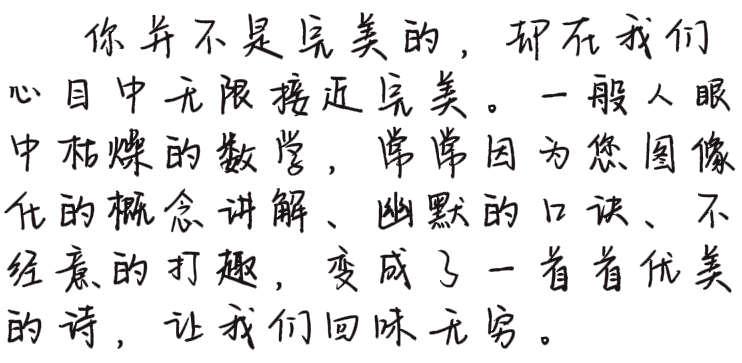 你并不是完美的，却在我们
心目中无限接近完美。一般人眼
中枯燥的数学，常常因为您图像
化的概念讲解、幽默的口诀、不
经意的打趣，变成了一首首优美
的诗，让我们回味无穷。